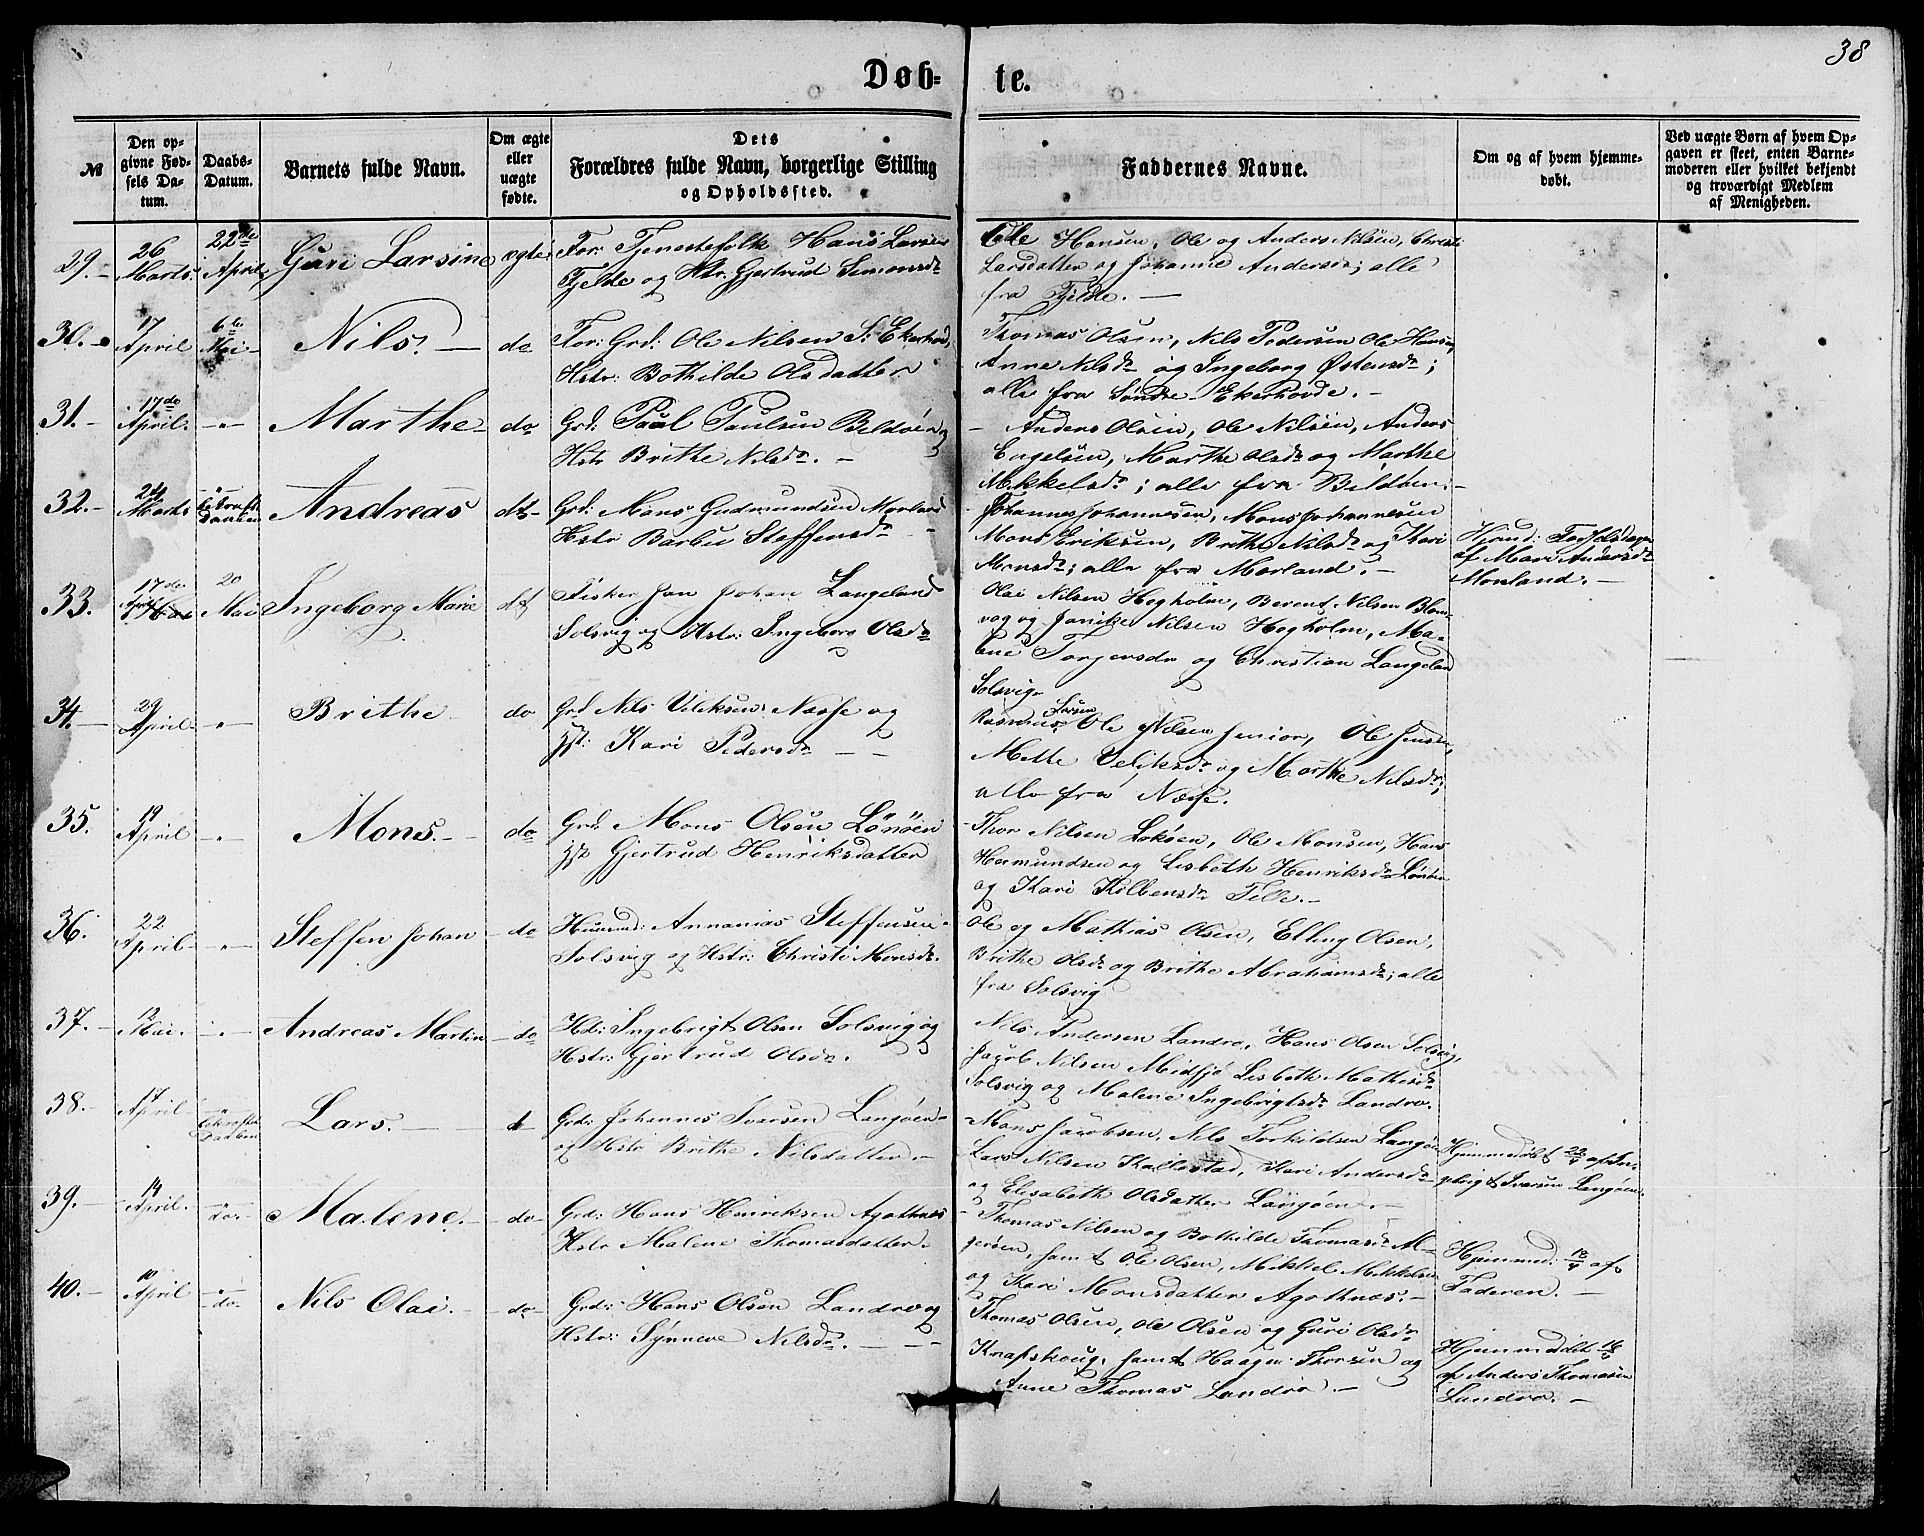 38
Døb-
te.
№
Den op-
givne Fød-
sels Da-
tum.
Daabs-
Datum.
Barnets fulde Navn.
Om ægte
eller
uægte
fødte.
Dets
Forældres fulde Navn, borgerlige Stilling
og Opholdssted.
Faddernes Navne.
Om og af hvem hjemme-
døbt.
Ved uægte Børn af hvem Op-
gaven er skeet, enten Barne-
moderen eller hvilket bekjendt
og troværdigt Medlem
af Menigheden.
29.-
26
Marts.
22de
April
Guri Larsine
ægte
For: Tjenestefolk Hans Larsen
Fjelde og Hstr: Gjertrud Simonsdr
Ole Hansen, Ole og Anders Nilsen, Christi
Larsdatter og Johanne Andersdr; alle
fra Fjelde. -
30.-
17
April
6te
Mai -
Nils. -
do
For: Grd: Ole Nilsen S. Ekerhovd,
Hstr: Bothilde Olsdatter
Thomas Olsen, Nils Pedersen Ole Hansen,
Anne Nilsdr og Ingeborg Østensdr;
alle fra Søndre Ekerhovde. -
31.-
17de
April.
-"-
Marthe -
do
Grd: Paul Paulsen Beldøen og
Hstr Brithe Nilsdr. -
- Anders Olsen, Ole Nilsen, Anders
Engelsen, Marthe Olsdr og Marthe
Mikkelsdr; alle fra Bildøen. -
32.-
24
Marts
Andreas
dt -
Grd: Mons Gudmundsen Morland
Hstr Barbu Steffensdr -
Johannes Johannesen, Mons Johannesen
Mons Eriksen, Brithe Nilsdr og Kari
Monsdr; alle fra Morland. -
af Mari Andersdr
Morland. -
33.
17de
April
20
Mai
Ingeborg Marie
dt
Fisker Jan Johan Langeland
Solsvig og Hstr: Ingeborg Olsdr
Olai Nilsen Hegholm, Berent Nilsen Blom-
vag og Janike Nilsen Hegholm, Ma-
lene Torgersdr og Christian Langeland
Solsvig.
34.-
29
April.
-"-
Brithe
do
Grd Nils Veliksen Nesse og
Kari Pedersdr - -
Rasmus Larsen Ole Nilsen senior, Ole Jensen,
Mette Veliksdr og Marthe Nilsdr;
alle fra Nesse.
35.
19
April
-"-
Mons. -
do
Grd. Mons Olsen Lønøen
Gjertrud Henriksdatter
- Thor Nilsen Lokøen, Ole Monsen, Hans
Hermundsen og Lisbeth Henriksdr Lønøen
og Kari Kolbensdr Telle. -
36.
22
April
-"-
Steffen Johan
do
Huusmd: Annanias Steffensen
Solsvig og Hstr: Christi Monsdr.
Ole og Mathias Olsen, Elling Olsen,
Brithe Olsdr og Brithe Abrahamsdr; alle
fra Solsvig
37.-
12
Mai.
-"-
Andreas Martin
- do
Hd: Ingebrigt Olsen Solsvig og
Hstr: Gjertrud Olsdr.
Nils Andersen Landro, Hans Olsen Solsvig,
Jacob Nilsen Midsjø Lisbeth Mathisdr
Solsvig og Malene Ingebrigtsdr Landro.
38.-
17
April
Lars. -
Grd: Johannes Iversen Langøen
og Hstr Brithe Nilsdatter. -
Mons Jacobsen, Nils Torkildsen Langøen
Lars Nilsen Kallestad, Kari Andersdr
og Elisabeth Olsdatter Langøen. -
Hjemmedøbt 22/4 af In-
gebrigt Iversen Langøen.
39.-
14
April.
do.
Malene. -
do
Grd: Hans Henriksen Agothnes
Hstr Malene Thomasdatter.
- Thomas Nilsen og Bothilde Thomasdr
samt Ole Olsen, Mikkel Mikkelsen
og Kari Monsdatter Agothnes. -
Hjemmed: 18/4 af
Faderen. -
40.-
10
April
do.
Nils Olai. -
do
Grd: Hans Olsen Landro og
Hstr: Synneve Nilsdr. - -
Thomas Olsen, Ole Olsen og Guri Olsdr
Knapskoug, samt Haagen Thorsen og
Anne Thomas Landro. -
Hjemmedøbt
af Anders Thomasen
Landro. -